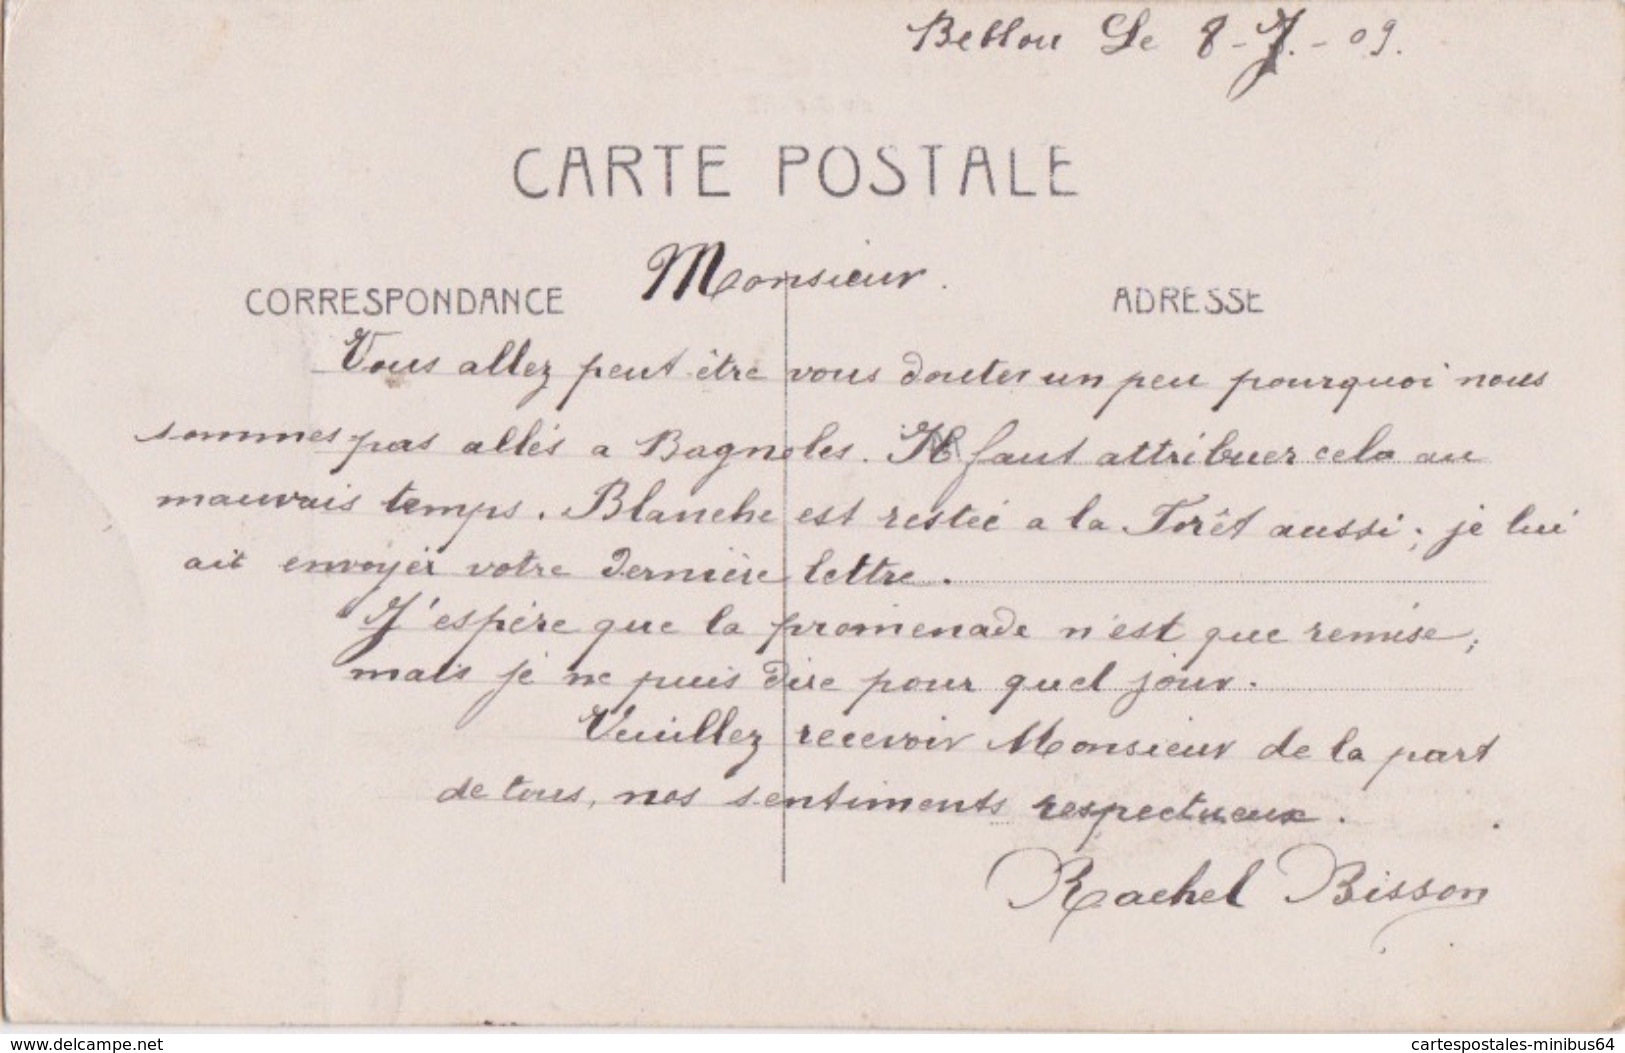 Beblou Le 8-7.-09.
CARTE POSTALE
Monsieur.
CORRESPONDANCE
ADRESSE
Vous allez peut-être vous douter un peu pourquoi nous
sommes pas allés a Bagnoles. Il faut attribuer cela au
mauvais temps. Blanche est restée a la Forêt aussi; je lui
ait envoyér votre dernière lettre.
J'espère que la promenade n'est que remise;
mais je ne puis dire pour quel jour.
Veuillez recevoir Monsieur de la part
de tous, nos sentiments respectueux.
Rachel Bisson
delcampe.net
cartespostales-minibus64